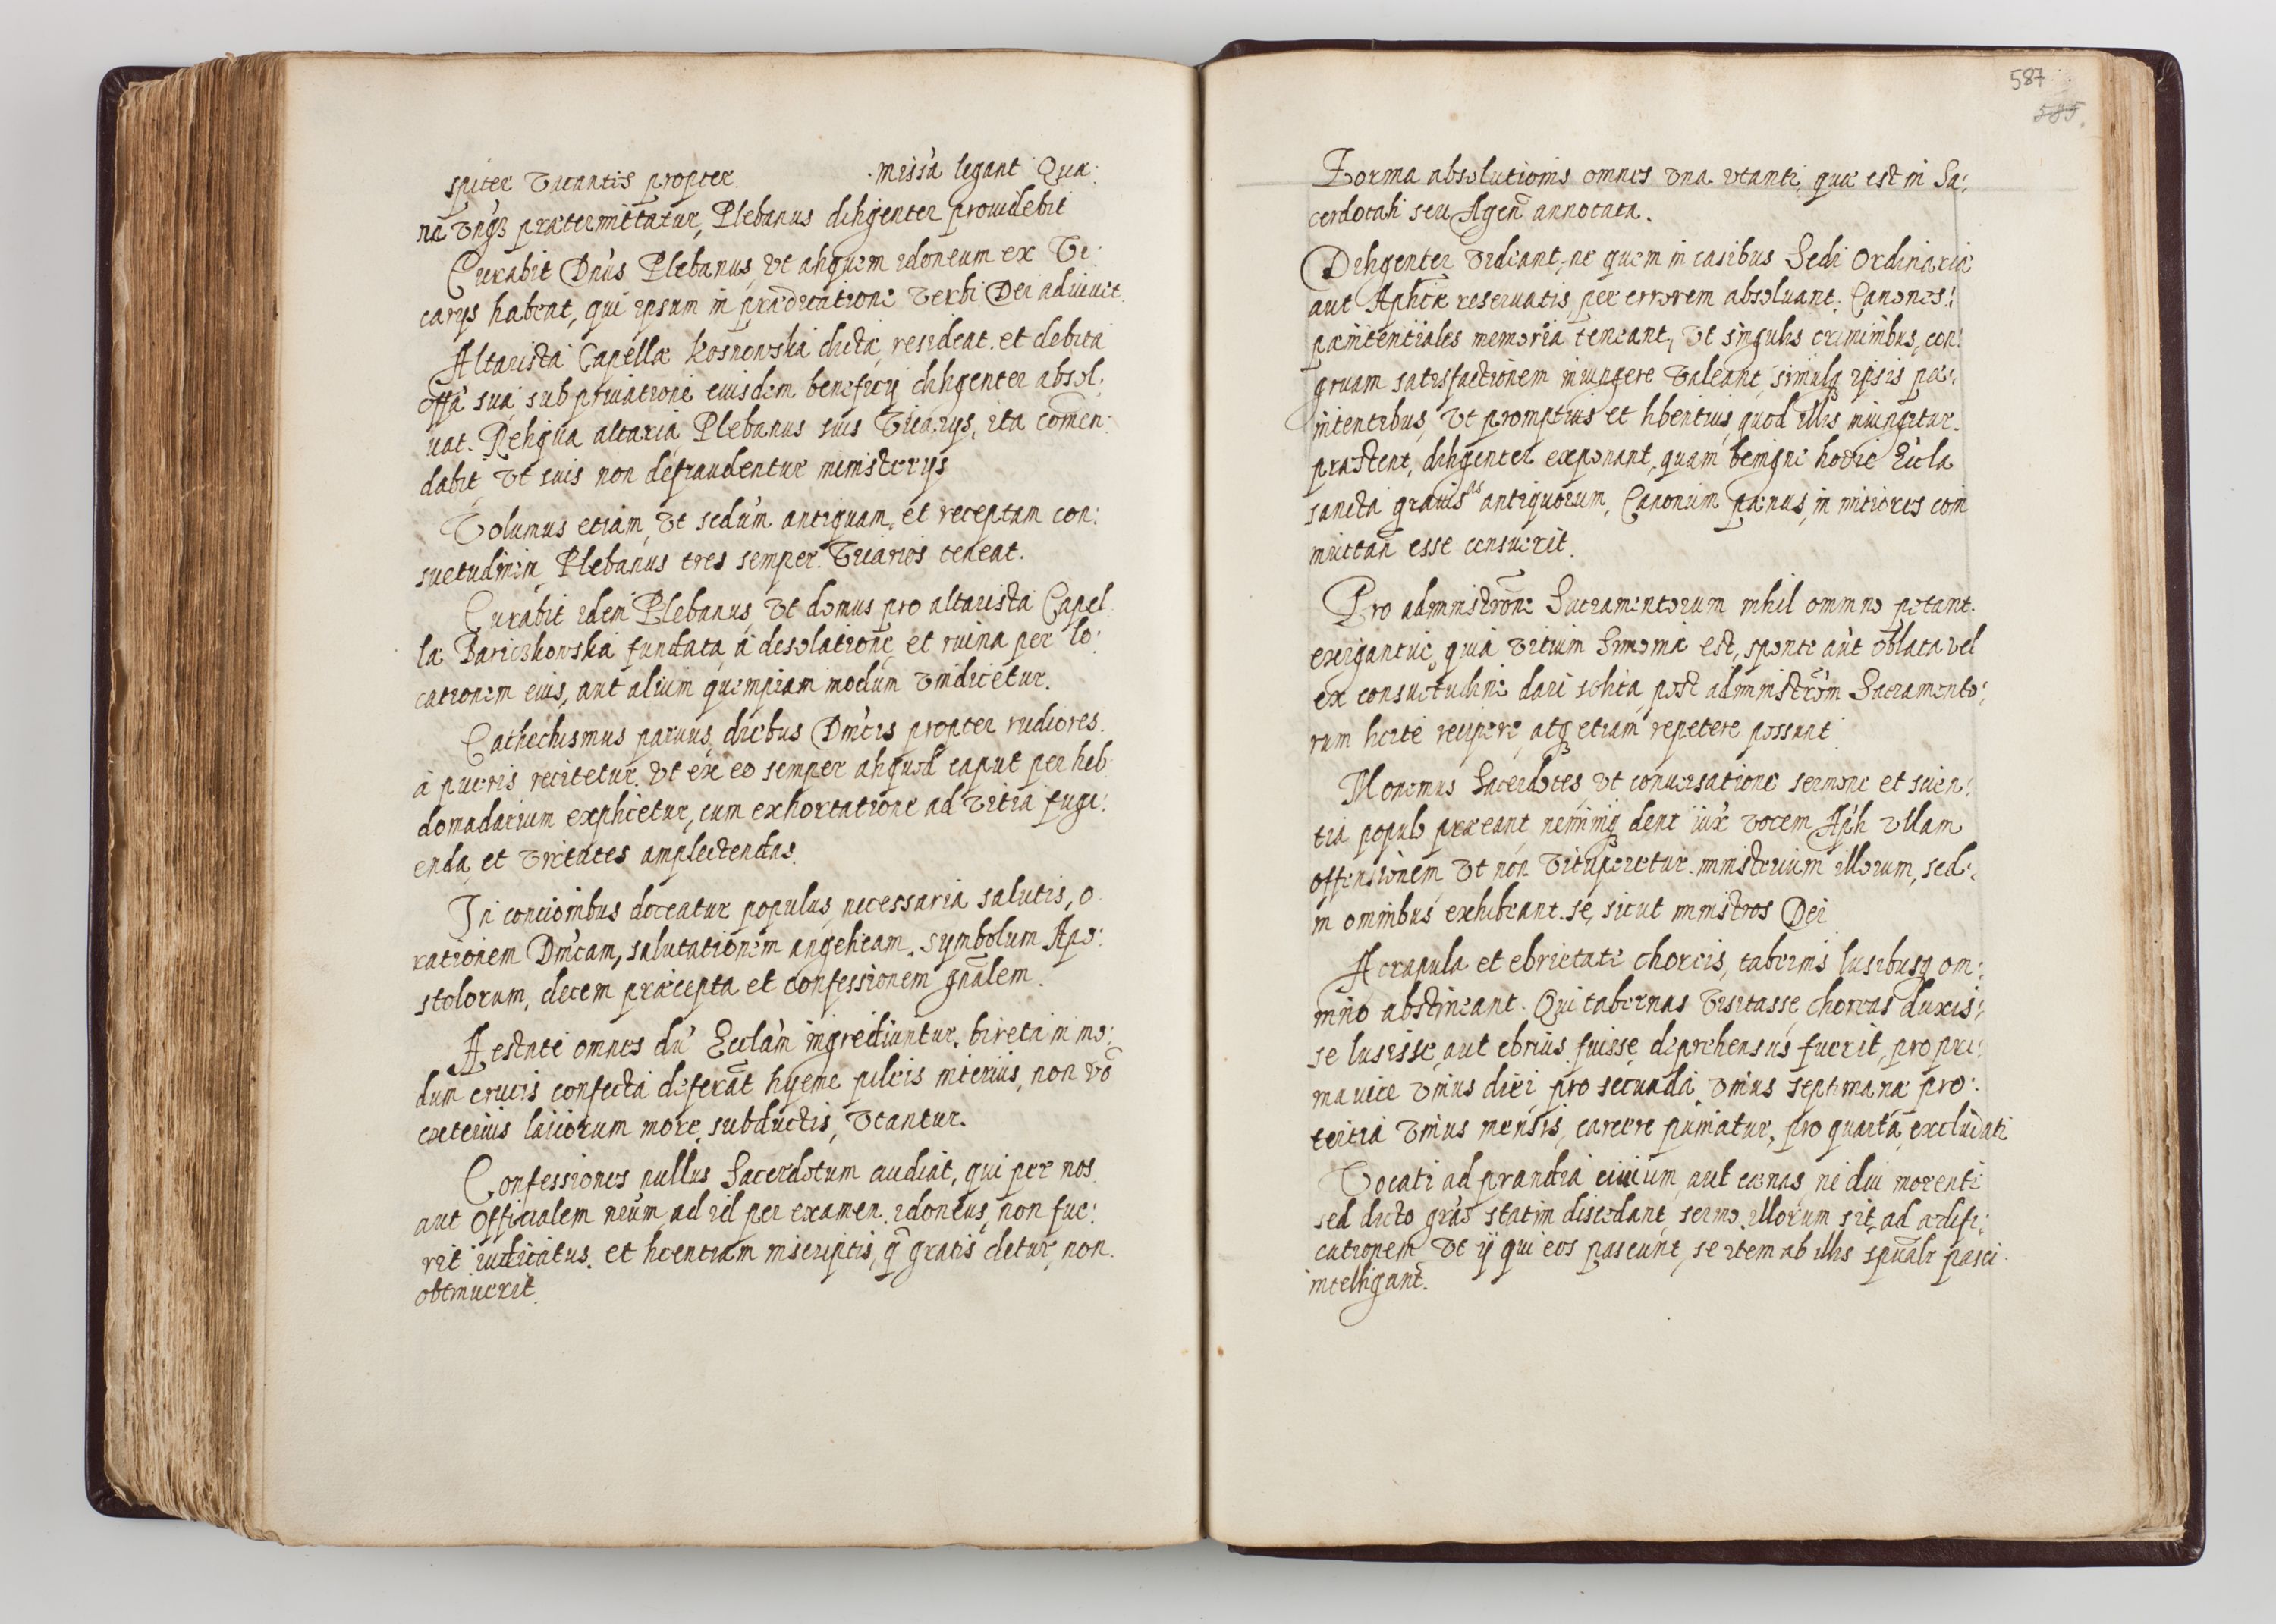 spiter vacantis propter missa legant Qua:
na vnqs prætermittatur, Plebanus diligenter prouidebit
Curabit Dnus Plebanus, vt aliquem idoneum ex Vi:
carys habeat, qui ipsum in prædicatione verbi Dei adiuuet.
Altarista Capellæ Kosnowska dicta, resideat. et debita
offa sua sub priuatione eiusdem beneficij diligenter absol:
uat. Reliqua altaria Plebanus suis Vicarys, ita comen:
dabit, vt suis non defraudentur ministerys
Volumus etiam, vt sedum antiquam, et receptam con:
suetudinem, Plebanus tres semper Vicarios teneat.
Curabit idem Plebanus, vt domus pro altarista Capel
la Bariczkowska fundata, a desolatione, et ruina per lo:
cationem eius, aut alium quempiam modum vindicetur.
Cathechismus paruus, diebus Dnicis propter rudiores.
a pueris recitetur. vt ex eo semper aliquod caput per heb
domadarium explicetur, cum exhortatione ad vitia fugi:
enda, et virtutes amplectendas.
In concionibus doceatur populus, necessaria salutis, o
rationem Dnicam, salutationem angelicam. symbolum Apo:
stolorum, decem præcepta et confessionem gnalem.
Aestate omnes du Ecclam ingrediuntur, bireta in mo:
dum crucis confecta deferat hyeme pileis interius, non vo
exterius laicorum more, subductis, vtantur.
Confessiones nullus Sacerdotum audiat, qui per nos.
aut Officialem nrum, ad id per examen. idoneus, non fue:
rit iudicatus. et licentiam inscriptis, q gratis detur, non.
obtinuerit.
587
585.
Forma absolutionis omnes vna vtantr, quæ est in Sa:
cerdotali seu Agen annotata.
Diligenter videant, ne quem in casibus Sedi Ordinariæ
aut Aplicæ reseruatis, per errorem absoluant. Canones:
pænitentiales memoria teneant, vt singulis criminibus, con:
gruam satisfactionem iniungere valeant, simulq ipsis pæ:
nitentibus, vt promptius et libentius, quod illis iniungitur.
præstent, diligenter exponant, quam benigne hodie Eccla
sancta grauis as antiquorum, Canonum pænas, in mitiores com
muttan esse consuerit.
Pro administrone Sacramentorum nihil omnino petant.
exigantue, quia vitium Simonia est, sponte aut oblata vel
ex consuetudine dari solita, post administrom Sacramento:
rum licite recipere, atq etiam repetere possunt
Monemus Sacerdotes, vt conuersatione sermone et scien:
tia populo præeant, neminiq dent iux vocem Apli vllam
offensionem, vt non vituperetur. ministerium illorum, sed:
in omnibus exhibeant. se, sicut ministros Dei
A crapula et ebrietate choreis, tabernis lusibusq om:
nino abstineant. Qui tabernas visitasse, choreas duxis:
se lusisse, aut ebrius fuisse deprehensus fuerit, pro pri:
ma vice vnius diei, pro secunda, vnius septimanæ pro:
tertia vnius mensis, carcere puniatur, pro quarta, excludatr
Vocati ad prandia ciuium, aut cænas, ne diu morentr
sed dicto gras statim discedant, sermo illorum sit, ad ædifi:
cationem, vt ij qui eos pascunt, se item ab illis spualr pasci
intelligant.